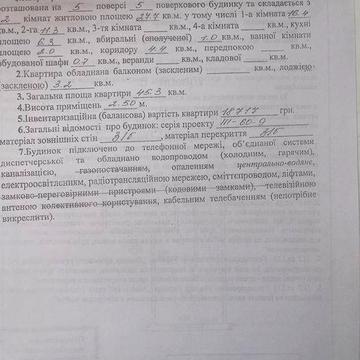 розташована на 5 поверсі 5 поверхового будинку та складається з
2 кімнат житловою площею 27.7 кв.м. у тому числі 1-а кімната 16.4
кв.м., 2-га 11.3 кв.м., 3-тя кімната кв.м., 4-а кімната кв.м., кухні
площею 6.3 кв.м., вбиральні (сполученої) 1.0 кв.м., ванної кімнати
площею 2.0 кв.м., коридору 4.4 кв.м., передпокою кв.м.,
вбудованої шафи 0.7 кв.м., веранди кв.м., кладової кв.м.
2.Квартира обладнана балконом (заскленим) кв.м., лоджією
(заскленою) 3.2 кв.м.
3. Загальна площа квартири 45.3 кв.м.
4.Висота приміщень 2.50 м.
5.Інвентаризаційна (балансова) вартість квартири 18717 грн.
6.Загальні відомості про будинок: серія проекту III-60-9
матеріал зовнішніх стін з/б, матеріал перекриття з/б
7.Будинок підключено до телефонної мережі, об'єднаної системи
диспетчерської та обладнано водопроводом (холодним, гарячим),
каналізацією, газопостачанням, опаленням центрально-водяне,
електроосвітленням, радіотрансляційною мережею, сміттєпроводом, ліфтами,
замково-переговорними пристроями (кодовими замками), телевізійною
антеною колективного користування, кабельним телебаченням (непотрібне
викреслити).